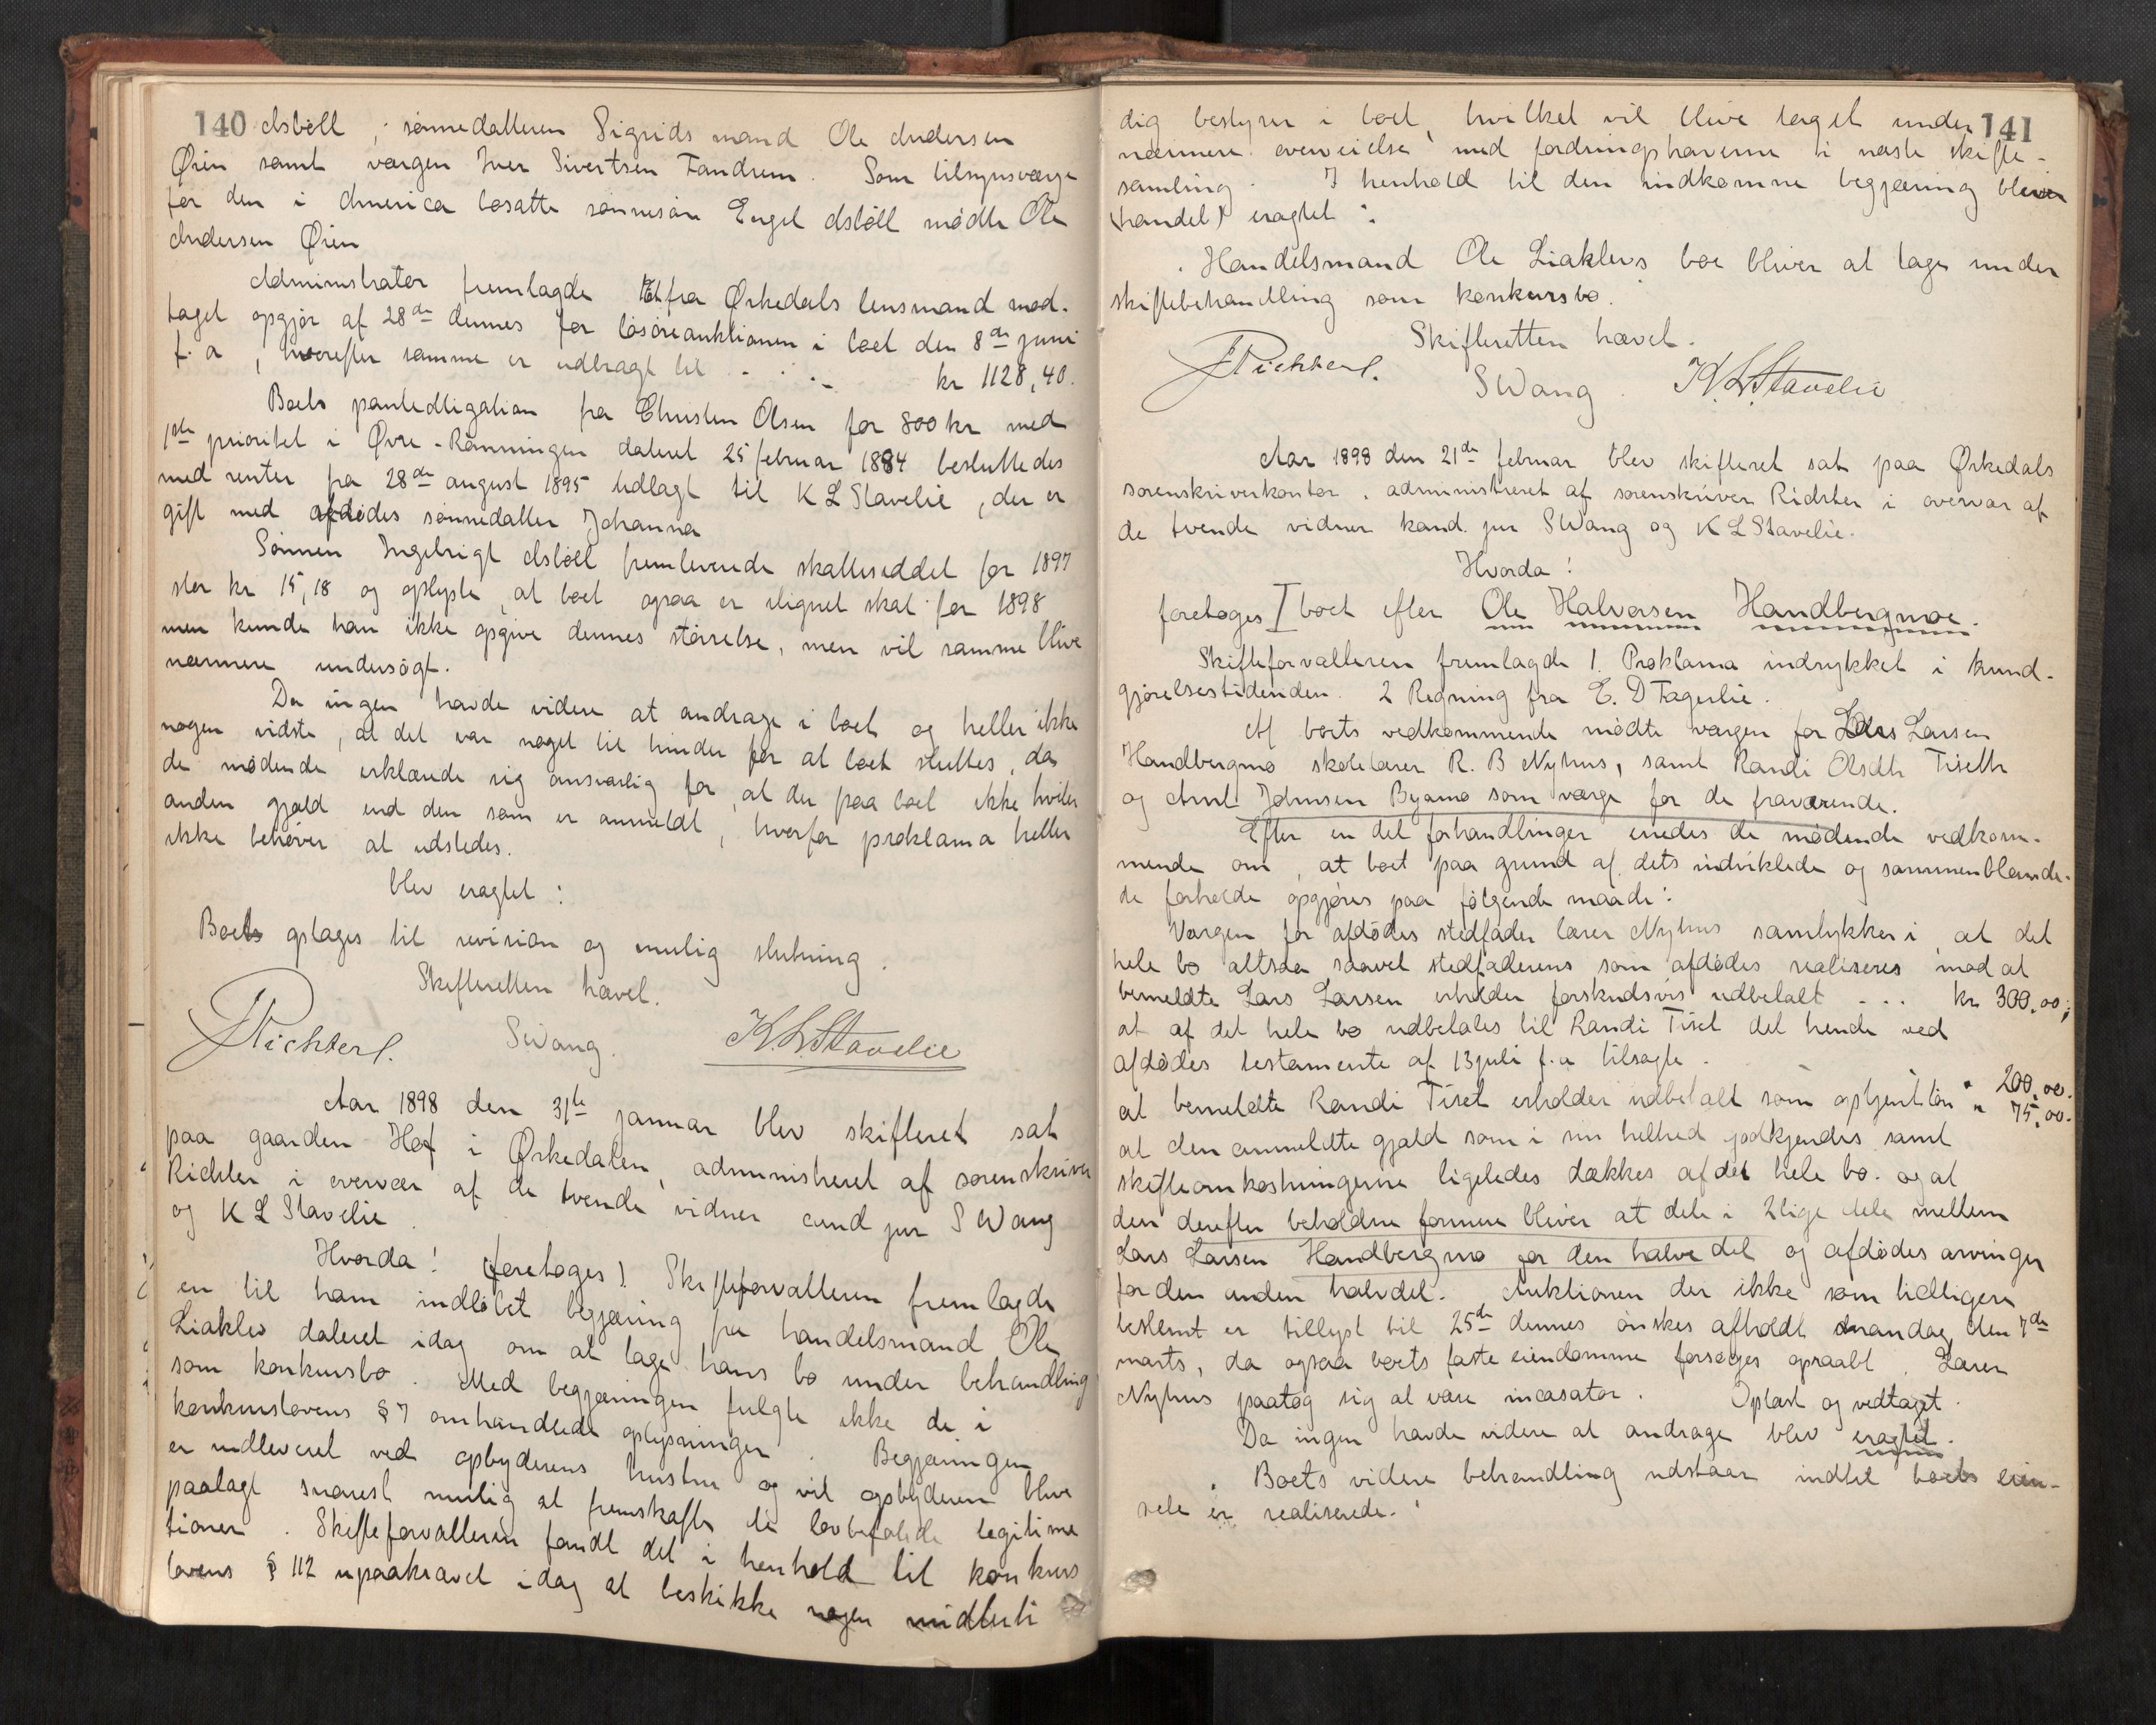 140
Asbøll, sønnedatteren Sigrids mand Ole Andersen
Øien samt værgen Iver Sivertsen Fandrem. Som tilsynsværge
for den i America bosatte sønnesøn Engel Asbøll mødte Ole
Andersen Øien
Administrator fremlagde et fra Ørkedals lensmand mod-
taget opgjør af 28de dennes for løsøreauktionen i boet den 8de juni
f. a, hvorefter samme er udbragt til - - - kr 1128,40.
Boets pantobligation fra Christen Olsen for 800 kr med
1ste prioritet i Øvre-Rønningen dateret 25 februar 1884 besluttedes
med renter fra 28de august 1895 udlagt til K L Stavelie, der er
gift med afdødes sønnedatter Johanna
Sønnen Ingebrigt Asbøll fremleverede skatteseddel for 1897
stor kr 15,18 og oplyste, at boet ogsaa er ilignet skat for 1898
men kunde han ikke opgive dennes størrelse, men vil samme blive
nærmere undersøgt.
Da ingen havde videre at andrage i boet og heller ikke
nogen vidste, at det var noget til hinder for at boet sluttes, da
de mødende erklærede sig ansvarlig for, at der paa boet ikke hviler
anden gjæld end den som er anmeldt, hvorfor proklama heller
ikke behøver at udstedes.
blev eragtet:
Boet optages til revision og mulig slutning.
Skifteretten hævet.
J Richter. S Wang. K. L. Stavelie
Aar 1898 den 31te januar blev skifteret sat
paa gaarden Hof i Ørkedalen, administreret af sorenskriver
Richter i overvær af de tvende vidner cand jur S Wang
og K L Stavelie.
Hvorda! (foretoges) Skifteforvalteren fremlagde
en til ham indløbet begjæring fra handelsmand Ole
Liaklev dateret idag om at tage hans bo under behandling
som konkursbo. Med begjæringen fulgte ikke de i
konkurslovens § 7 omhandlede oplysninger. Begjæringen
er indleveret ved opbyderens hustru og vil opbyderen blive
paalagt snarest mulig at fremskaffe de lovbefalede legitima
tioner. Skifteforvalteren fandt det i henhold til konkurs
lovens § 112 upaakrævet idag at beskikke nogen midlerti
141
dig bestyrer i boet, hvilket vil blive taget under
nærmere overveielse med fordringshaverne i næste skifte-
samling. I henhold til den indkomne begjæring blev
(handel) eragtet:
"Handelsmand Ole Liaklevs boe bliver at tage under
skiftebehandling som konkursbo."
Skifteretten hævet.
J Richter. S Wang. K. L. Stavelie
Aar 1898 den 21de februar blev skifteret sat paa Ørkedals
sorenskriverkontor, administreret af sorenskriver Richter i overvær af
de tvende vidner kand. jur S Wang og K L Stavelie.
Hvorda!
foretoges I boet efter Ole Halvorsen Handbergmoe.
Skifteforvalteren fremlagde 1. Proklama indrykket i kund-
gjørelsestidenden. 2 Regning fra E. D Fagerlie.
Af boets vedkommende mødte værgen for Lars Larsen
Handbergmo skolelærer R. B Nyhus, samt Randi Olsdtr Tiseth
og Arnt Johnsen Byamo som værge for de fraværende.
Efter en del forhandlinger enedes de mødende vedkom-
mende om, at boet paa grund af dets indviklede og sammenblande-
de forholde opgjøres paa følgende maade:
Værgen for afdødes stedfader lærer Nyhus samtykker i, at det
hele bo altsaa saavel stedfaderens som afdødes realiseres mod at
bemeldte Lars Larsen erholder forskudsvis udbetalt - - - kr 300,00;
at af det hele bo udbetales til Randi Tiset det hende ved
afdødes testamente af 13 juli f. a tilsagte. " 200,00.
at bemeldte Randi Tiset erholder udbetalt som optjent løn " 75,00.
at den anmeldte gjæld som i sin helhed godkjendes samt
skifteomkostningerne ligeledes dækkes af det hele bo. og at
den derefter beholdne formue bliver at dele i 2 lige dele mellem
Lars Larsen Handbergmo for den halve del og afdødes arvinger
for den anden halvdel. Auktionen der ikke som tidligere
bestemt er tillyst til 25de dennes ønskes afholdt mandag den 7de
marts, da ogsaa boets faste eiendomme forsøges opraabt. Lærer
Nyhus paatog sig at være incasator. Oplæst og vedtaget.
Da ingen havde videre at andrage blev eragtet.
"Boets videre behandling udstaar indtil boets eien-
dele er realiserede."